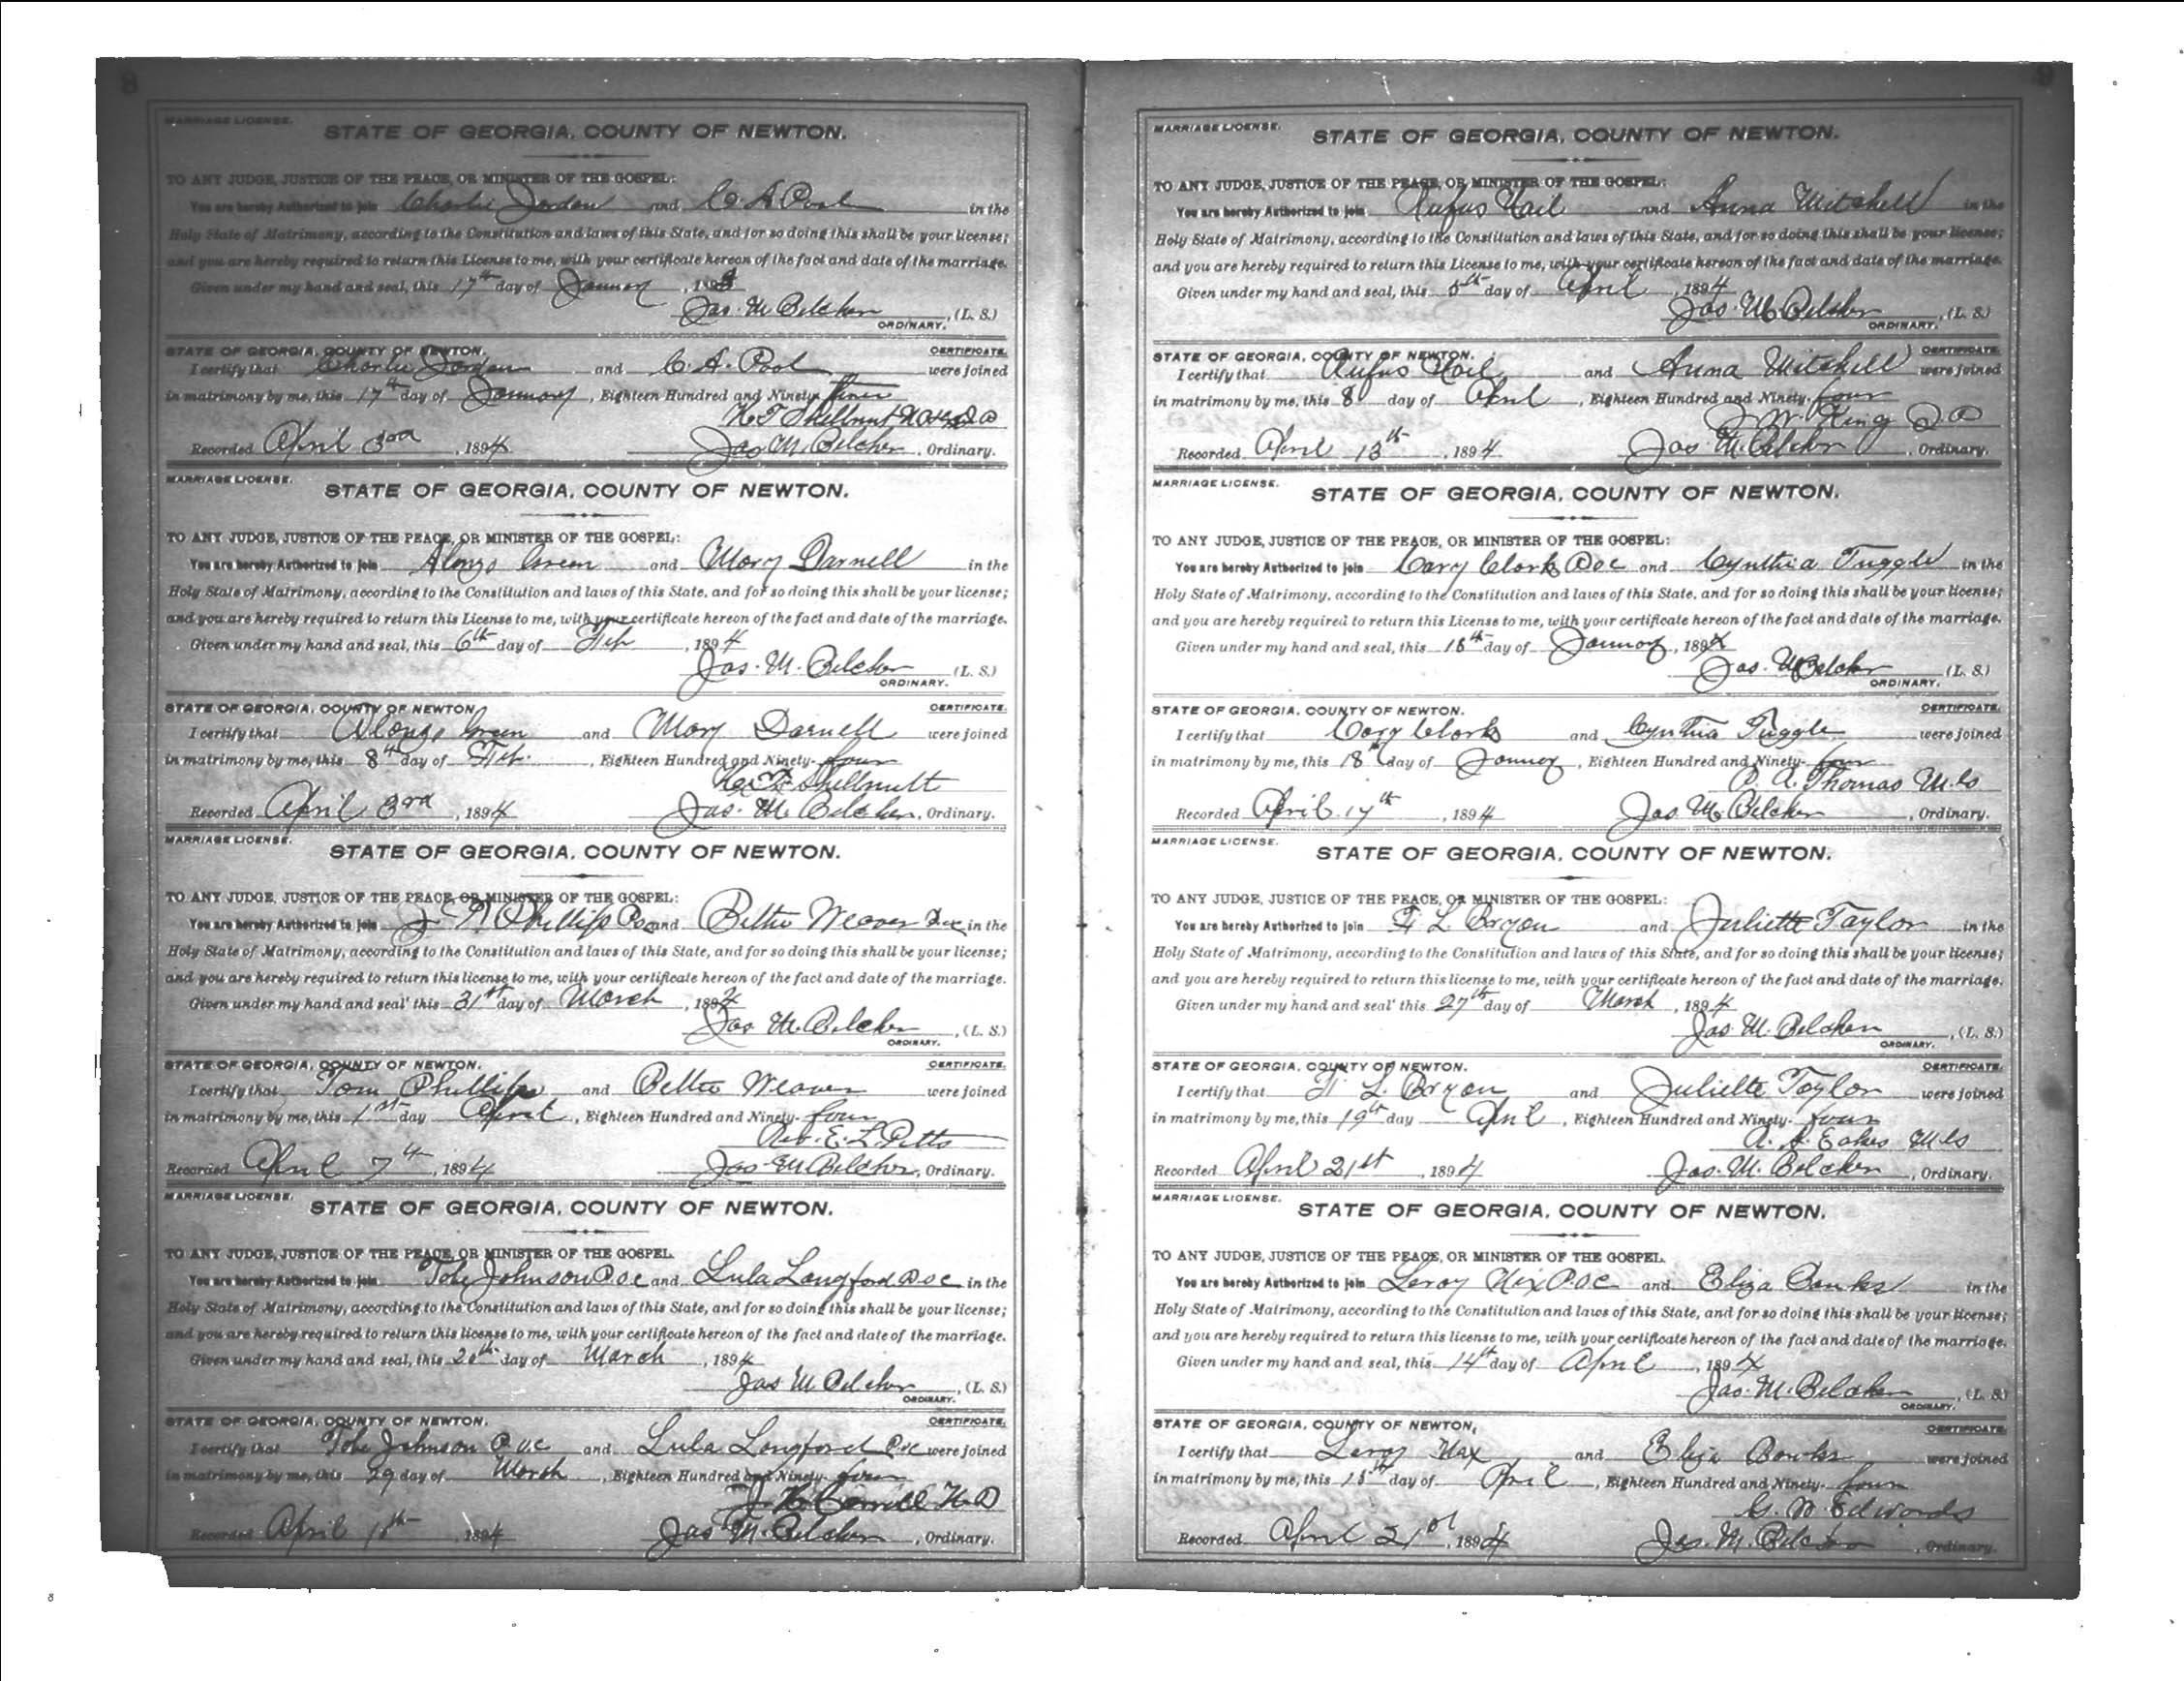 8
MARRIAGE LICENSE.
STATE OF GEORGIA, COUNTY OF NEWTON.
TO ANY JUDGE, JUSTICE OF THE PEACE, OR MINISTER OF THE GOSPEL:
You are hereby Authorized to join Charlie Jordan and C A Pool in the
Holy State of Matrimony, according to the Constitution and laws of this State, and for so doing this shall be your license;
and you are hereby required to return this License to me, with your certificate hereon of the fact and date of the marriage.
Given under my hand and seal, this 17th day of January, 1893
Jas. M Belcher, (L. S.)
ORDINARY.
STATE OF GEORGIA, COUNTY OF NEWTON. CERTIFICATE.
I certify that Charlie Jordan and C. A. Pool were joined
in matrimony by me, this 17th day of January, Eighteen Hundred and Ninety three
H. T. Shellnut
Recorded April 3rd, 1894 Jas M. Belcher, Ordinary.
MARRIAGE LICENSE.
STATE OF GEORGIA, COUNTY OF NEWTON.
TO ANY JUDGE, JUSTICE OF THE PEACE, OR MINISTER OF THE GOSPEL:
You are hereby Authorized to join Alonzo Green and Mary Darnell in the
Holy State of Matrimony, according to the Constitution and laws of this State, and for so doing this shall be your license;
and you are hereby required to return this License to me, with your certificate hereon of the fact and date of the marriage.
Given under my hand and seal, this 6th day of Feb, 1894
Jas. M. Belcher (L. S.)
ORDINARY.
STATE OF GEORGIA, COUNTY OF NEWTON CERTIFICATE.
I certify that Alonzo Green and Mary Darnell were joined
in matrimony by me, this 8th day of Feb., Eighteen Hundred and Ninety- four
H. T. Shellnutt
Recorded April 3rd, 1894 Jas. M. Belcher, Ordinary.
MARRIAGE LICENSE.
STATE OF GEORGIA, COUNTY OF NEWTON.
TO ANY JUDGE, JUSTICE OF THE PEACE, OR MINISTER OF THE GOSPEL:
You are hereby Authorized to join Phillips and Bettie Weaver in the
Holy State of Matrimony, according to the Constitution and laws of this State, and for so doing this shall be your license;
and you are hereby required to return this license to me, with your certificate hereon of the fact and date of the marriage.
Given under my hand and seal' this 31st day of March, 1894
Jas M. Belcher, (L. S.)
ORDINARY.
STATE OF GEORGIA, COUNTY OF NEWTON. CERTIFICATE.
I certify that Tom Phillips and Bettie Weaver were joined
in matrimony by me, this 1st day April, Eighteen Hundred and Ninety- four
Rev. E. L. Pitts
Recorded April 7th, 1894 Jas M Belcher, Ordinary.
MARRIAGE LICENSE.
STATE OF GEORGIA, COUNTY OF NEWTON.
TO ANY JUDGE, JUSTICE OF THE PEACE, OR MINISTER OF THE GOSPEL.
You are hereby Authorized to join Tobe Johnson and Lula Longford in the
Holy State of Matrimony, according to the Constitution and laws of this State, and for so doing this shall be your license;
and you are hereby required to return this license to me, with your certificate hereon of the fact and date of the marriage.
Given under my hand and seal, this day of March, 1894
Jas M Belcher, (L. S.)
ORDINARY.
STATE OF GEORGIA, COUNTY OF NEWTON. CERTIFICATE.
I certify that Tobe Johnson and Lula Longford were joined
in matrimony by me, this 29 day of March, Eighteen Hundred and Ninety- four
Recorded April, 1894 Jas M. Belcher, Ordinary.
9
MARRIAGE LICENSE.
STATE OF GEORGIA, COUNTY OF NEWTON.
TO ANY JUDGE, JUSTICE OF THE PEACE, OR MINISTER OF THE GOSPEL:
You are hereby Authorized to join Rufus and Anna Mitchell in the
Holy State of Matrimony, according to the Constitution and laws of this State, and for so doing this shall be your license;
and you are hereby required to return this License to me, with your certificate hereon of the fact and date of the marriage.
Given under my hand and seal, this 5th day of April, 1894
Jas. M. Belcher, (L. S.)
ORDINARY.
STATE OF GEORGIA, COUNTY OF NEWTON. CERTIFICATE.
I certify that Rufus and Anna Mitchell were joined
in matrimony by me, this 8 day of April, Eighteen Hundred and Ninety- four
J W. King
Recorded April 13th, 1894 Jas M. Belcher, Ordinary.
MARRIAGE LICENSE.
STATE OF GEORGIA, COUNTY OF NEWTON.
TO ANY JUDGE, JUSTICE OF THE PEACE, OR MINISTER OF THE GOSPEL:
You are hereby Authorized to join Cary Clark and Cynthia Tuggle in the
Holy State of Matrimony, according to the Constitution and laws of this State, and for so doing this shall be your license;
and you are hereby required to return this License to me, with your certificate hereon of the fact and date of the marriage.
Given under my hand and seal, this day of January, 1894
Jas. M Belcher (L. S.)
ORDINARY.
STATE OF GEORGIA, COUNTY OF NEWTON. CERTIFICATE.
I certify that Cary Clark and Cynthia Tuggle were joined
in matrimony by me, this 18th day of January, Eighteen Hundred and Ninety- four
Thomas M. G
Recorded April 17th, 1894 Jas M. Belcher, Ordinary.
MARRIAGE LICENSE.
STATE OF GEORGIA, COUNTY OF NEWTON.
TO ANY JUDGE, JUSTICE OF THE PEACE, OR MINISTER OF THE GOSPEL:
You are hereby Authorized to join L Bryan and Juliette Taylor in the
Holy State of Matrimony, according to the Constitution and laws of this State, and for so doing this shall be your license;
and you are hereby required to return this license to me, with your certificate hereon of the fact and date of the marriage.
Given under my hand and seal' this 27th day of March, 1894
Jas M. Belcher, (L. S.)
ORDINARY.
STATE OF GEORGIA, COUNTY OF NEWTON. CERTIFICATE.
I certify that L. Bryan and Juliette Taylor were joined
in matrimony by me, this 19th day April, Eighteen Hundred and Ninety- four
Eakes M G
Recorded April 21st, 1894 Jas. M. Belcher, Ordinary.
MARRIAGE LICENSE.
STATE OF GEORGIA, COUNTY OF NEWTON.
TO ANY JUDGE, JUSTICE OF THE PEACE, OR MINISTER OF THE GOSPEL.
You are hereby Authorized to join Leroy and Eliza Banks in the
Holy State of Matrimony, according to the Constitution and laws of this State, and for so doing this shall be your license;
and you are hereby required to return this license to me, with your certificate hereon of the fact and date of the marriage.
Given under my hand and seal, this 14th day of April, 1894
Jas. M. Belcher, (L. S.)
ORDINARY.
STATE OF GEORGIA, COUNTY OF NEWTON, CERTIFICATE.
I certify that Leroy and Eliza Banks were joined
in matrimony by me, this 15th day of April, Eighteen Hundred and Ninety- four
G. W Edwards
Recorded April 21st, 1894 Jas. M. Belcher, Ordinary.